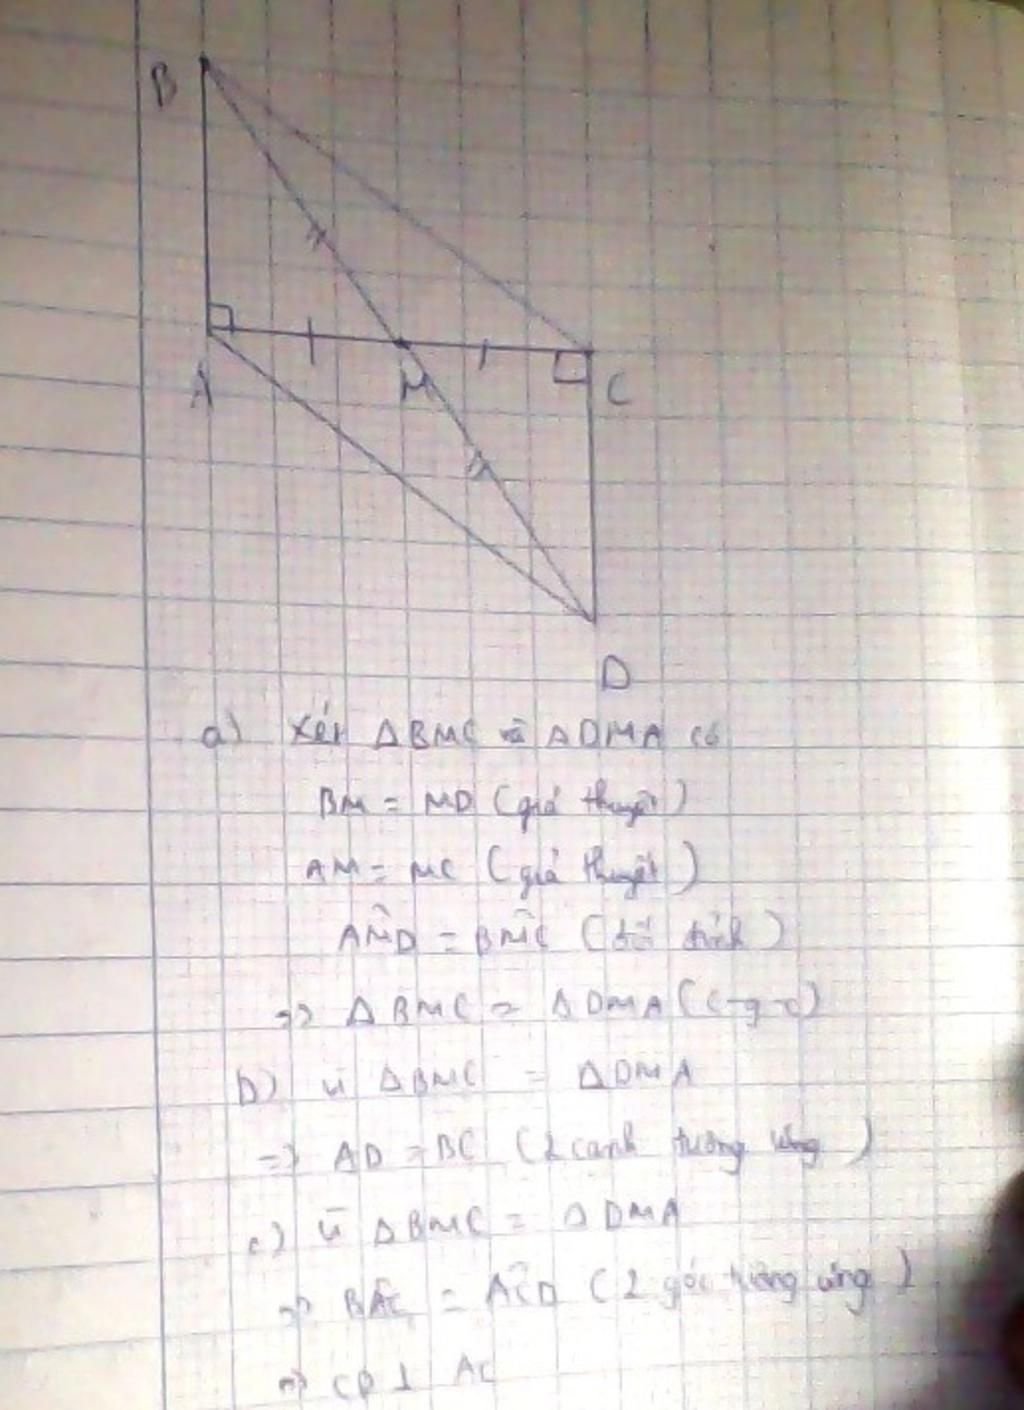 B
A
M
C
D
a) Xét ΔBMC và ΔDMA có
BM = MD (giả thuyết)
AM = MC (giả thuyết)
AM̂D = BM̂C (đối đỉnh)
=> ΔBMC = ΔDMA (c-g-c)
b) vì ΔBMC = ΔDMA
=> AD = BC (2 cạnh tương ứng)
c) vì ΔBMC = ΔDMA
=> BÂC = AĈD (2 góc tương ứng)
=> CD ⊥ AC